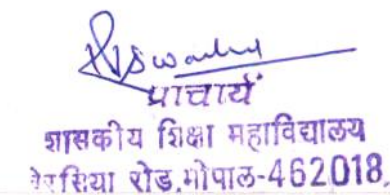 प्राचार्य
शासकीय शिक्षा महाविद्यालय
बैरसिया रोड,भोपाल-462018